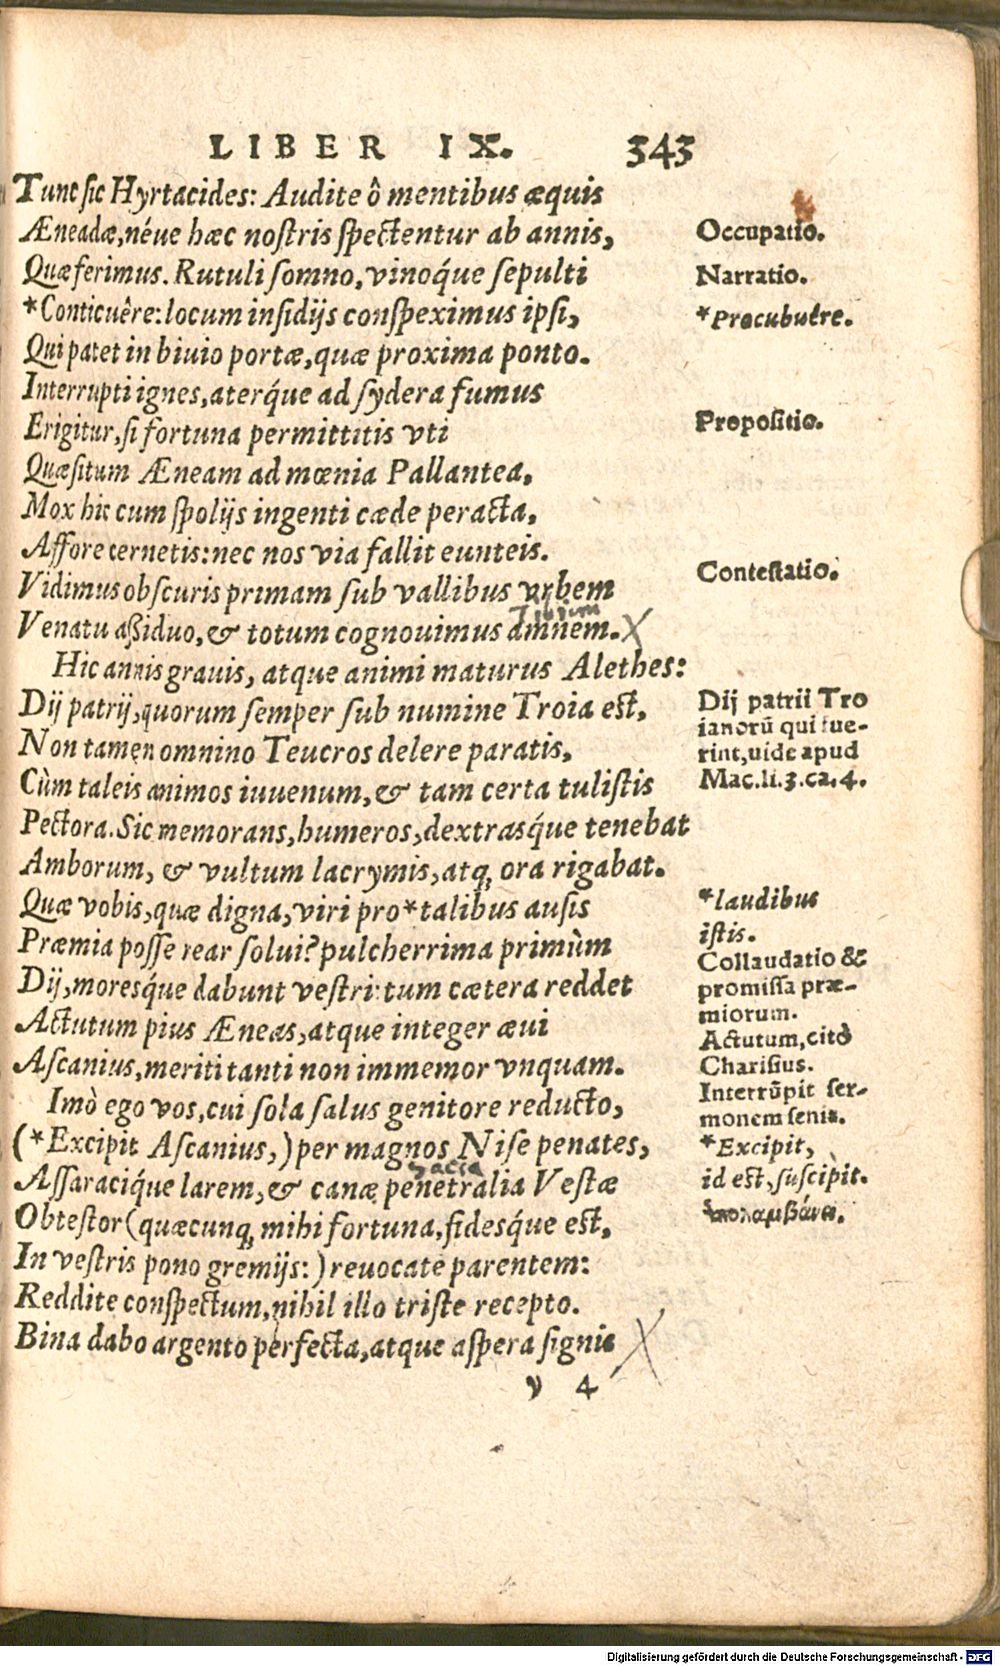 LIBER IX. 343
Tunc sic Hyrtacides: Audite ô mentibus æquis
Æneadæ, néue hæc nostris spectentur ab annis,
Quæ ferimus. Rutuli somno, vinoq́ue sepulti
*Conticuêre: locum insidijs conspeximus ipsi,
Qui patet in biuio portæ, quæ proxima ponto.
Interrupti ignes, aterq́ue ad sydera fumus
Erigitur, si fortuna permittitis vti
Quæsitum Æneam ad mœnia Pallantea,
Mox hic cum spolijs ingenti cæde peracta,
Affore cernetis: nec nos via fallit eunteis.
Vidimus obscuris primam sub vallibus vrbem
Venatu aßiduo, & totum cognouimus amnem. X
Hic annis grauis, atque animi maturus Alethes:
Dij patrij, quorum semper sub numine Troia est,
Non tamen omnino Teucros delere paratis,
Cùm taleis animos iuuenum, & tam certa tulistis
Pectora. Sic memorans, humeros, dextrasq́ue tenebat
Amborum, & vultum lacrymis, atq; ora rigabat.
Quæ vobis, quæ digna, viri pro*talibus ausis
Præmia posse rear solui? pulcherrima primùm
Dij, moresq́ue dabunt vestri: tum cætera reddet
Actutum pius Æneas, atque integer æui
Ascanius, meriti tanti non immemor vnquam.
Imò ego vos, cui sola salus genitore reducto,
(*Excipit Ascanius,) per magnos Nise penates,
Assaraciq́ue larem, & canæ penetralia Vestæ
Obtestor (quæcunq; mihi fortuna, fidesq́ue est,
In vestris pono gremijs:) reuocate parentem:
Reddite conspectum, nihil illo triste recepto.
Bina dabo argento perfecta, atque aspera signis X
v 4
Occupatio.
Narratio.
*Procubuêre.
Propositio.
Contestatio.
Dij patrii Tro
ianorũ qui fue-
rint, uide apud
Mac.li.3.ca.4.
*laudibus
istis.
Collaudatio &
promissa præ-
miorum.
Actutum, citò
Charisius.
Interrũpit ser-
monem senis.
*Excipit,
id est, suscipit.
ὑπολαμβάνει.
sacra
Digitalisierung gefördert durch die Deutsche Forschungsgemeinschaft - DFG